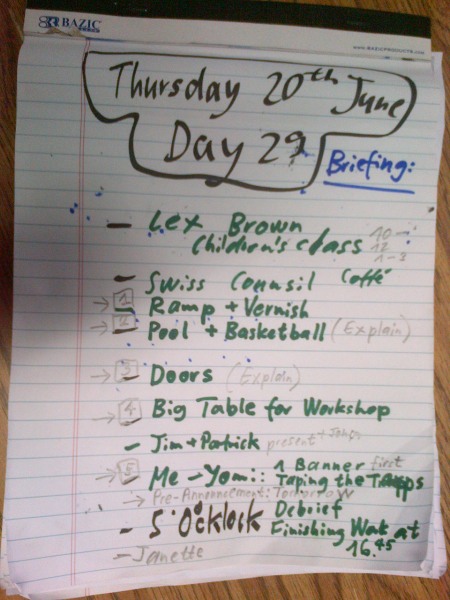 BAZIC
www.BAZICPRODUCTS.com
Thursday 20th June
Day 29
Briefing:
- Lex Brown
Children's class
10 -
12
1-3
- Swiss Counsil Caffé
→ 1 Ramp + Vernish
→ 2 Pool + Basketball (Explain)
→ 3 Doors (Explain)
→ 4 Big Table for Workshop
- Jim + Patrick present
→ 5 Me - Yomi: 1 Banner first
Taping the Tarpps
→ Pre-Announcement: Tomorrow
- 5 O'cklock Debrief
Finishing Work at
16.45
- Janette